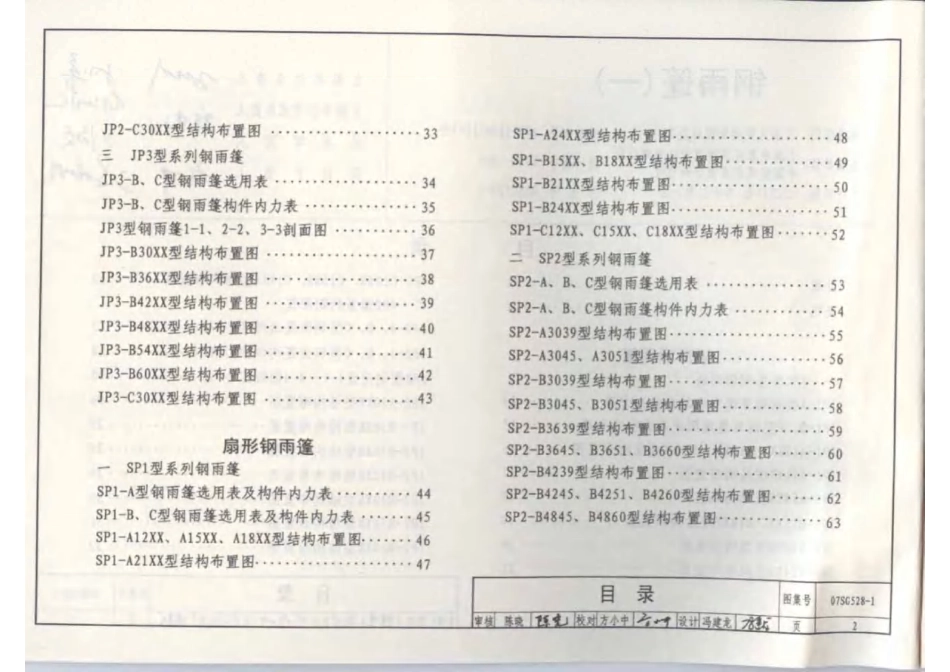 JP2-C30XX型结构布置图 ················ 33
三 JP3型系列钢雨篷
JP3-B、C型钢雨篷选用表 ················ 34
JP3-B、C型钢雨篷构件内力表 ············ 35
JP3型钢雨篷1-1、2-2、3-3剖面图 ········· 36
JP3-B30XX型结构布置图 ················ 37
JP3-B36XX型结构布置图 ················ 38
JP3-B42XX型结构布置图 ················ 39
JP3-B48XX型结构布置图 ················ 40
JP3-B54XX型结构布置图 ················ 41
JP3-B60XX型结构布置图 ················ 42
JP3-C30XX型结构布置图 ················ 43
扇形钢雨篷
一 SP1型系列钢雨篷
SP1-A型钢雨篷选用表及构件内力表 ········· 44
SP1-B、C型钢雨篷选用表及构件内力表 ······ 45
SP1-A12XX、A15XX、A18XX型结构布置图······ 46
SP1-A21XX型结构布置图················· 47
SP1-A24XX型结构布置图················· 48
SP1-B15XX、B18XX型结构布置图··········· 49
SP1-B21XX型结构布置图················· 50
SP1-B24XX型结构布置图················· 51
SP1-C12XX、C15XX、C18XX型结构布置图······ 52
二 SP2型系列钢雨篷
SP2-A、B、C型钢雨篷选用表 ············· 53
SP2-A、B、C型钢雨篷构件内力表 ·········· 54
SP2-A3039型结构布置图················· 55
SP2-A3045、A3051型结构布置图··········· 56
SP2-B3039型结构布置图················· 57
SP2-B3045、B3051型结构布置图··········· 58
SP2-B3639型结构布置图················· 59
SP2-B3645、B3651、B3660型结构布置图······ 60
SP2-B4239型结构布置图················· 61
SP2-B4245、B4251、B4260型结构布置图······ 62
SP2-B4845、B4860型结构布置图··········· 63
目 录 图集号 07SG528-1
审核 陈晓 校对 方小中 设计 冯建龙 页 2